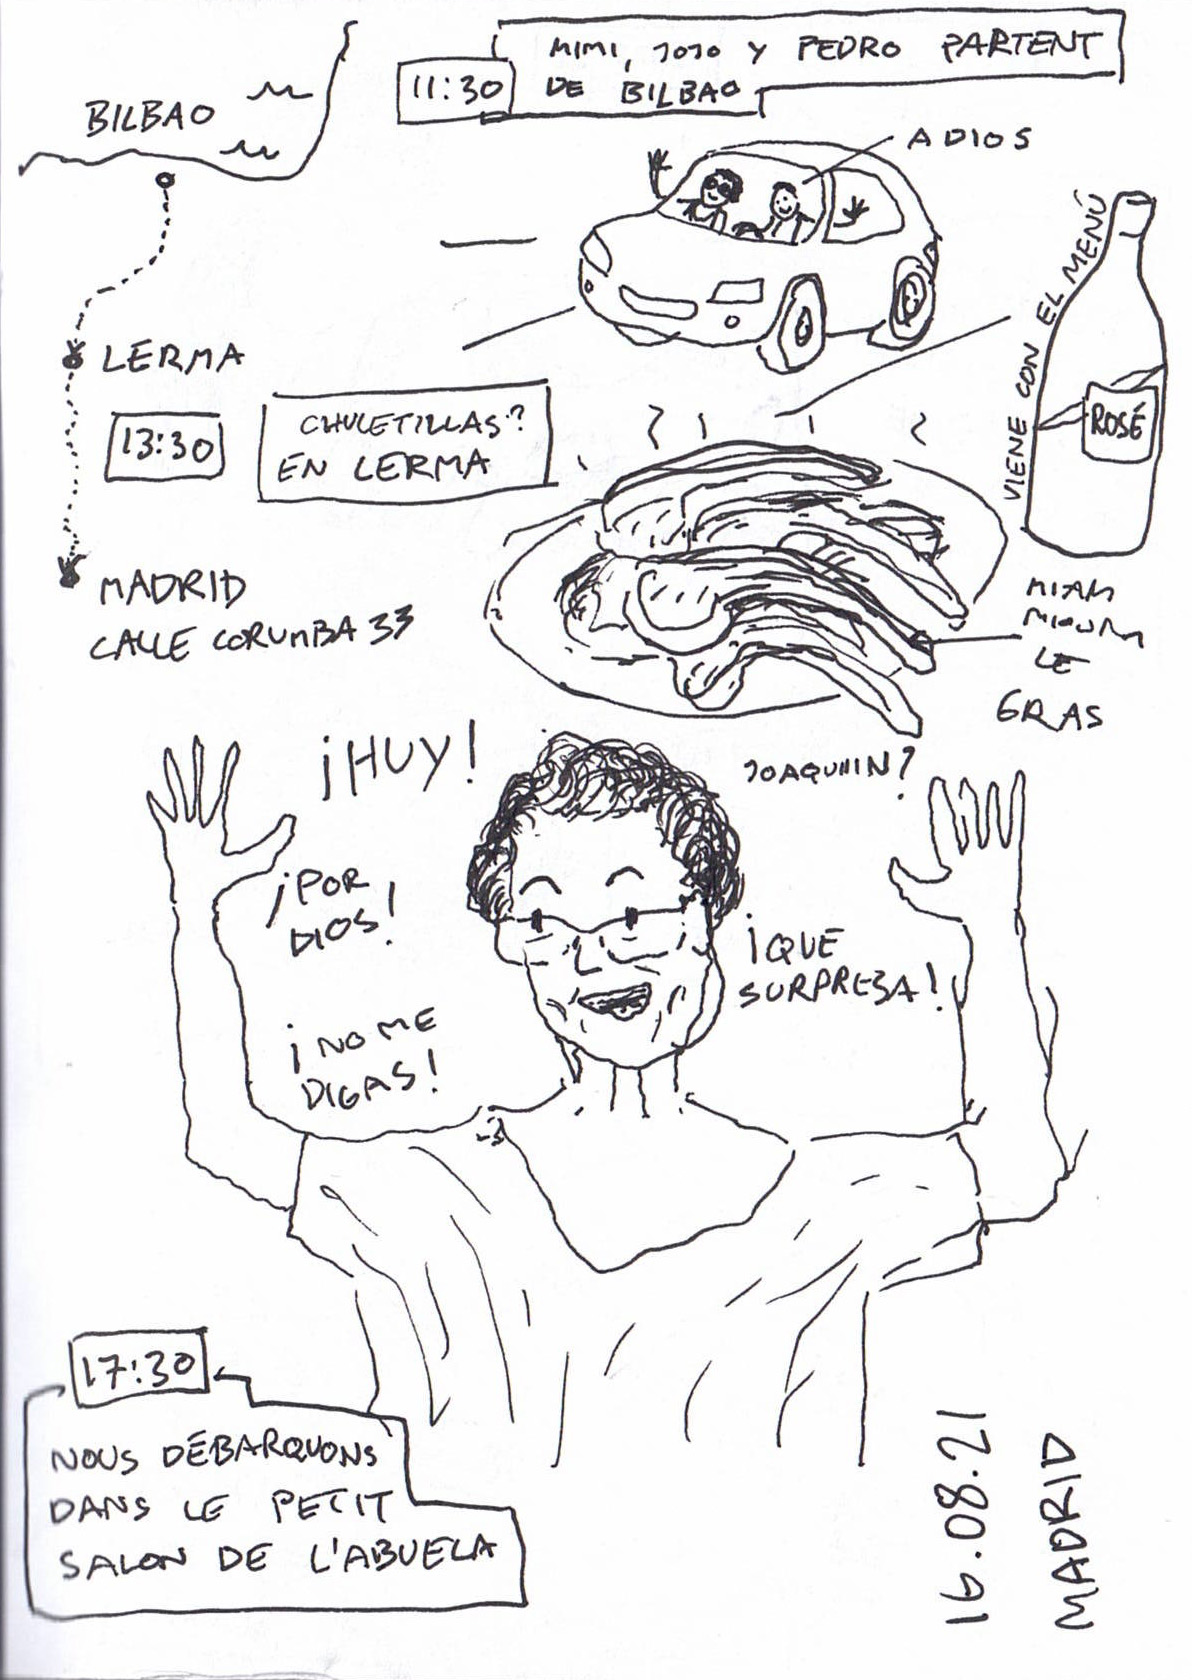 BILBAO
11:30
MIMI, JOJO Y PEDRO PARTENT
DE BILBAO
ADIOS
VIENE CON EL MENÚ
ROSÉ
LERMA
13:30
CHULETILLAS?
EN LERMA
MADRID
CALLE CORUMBA 33
MIAM
MIOUM
LE
GRAS
¡HUY!
JOAQUIIIN?
¡POR
DIOS!
¡QUE
SURPRESA!
¡NO ME
DIGAS!
17:30
NOUS DÉBARQUONS
DANS LE PETIT
SALON DE L'ABUELA
16.08.21
MADRID